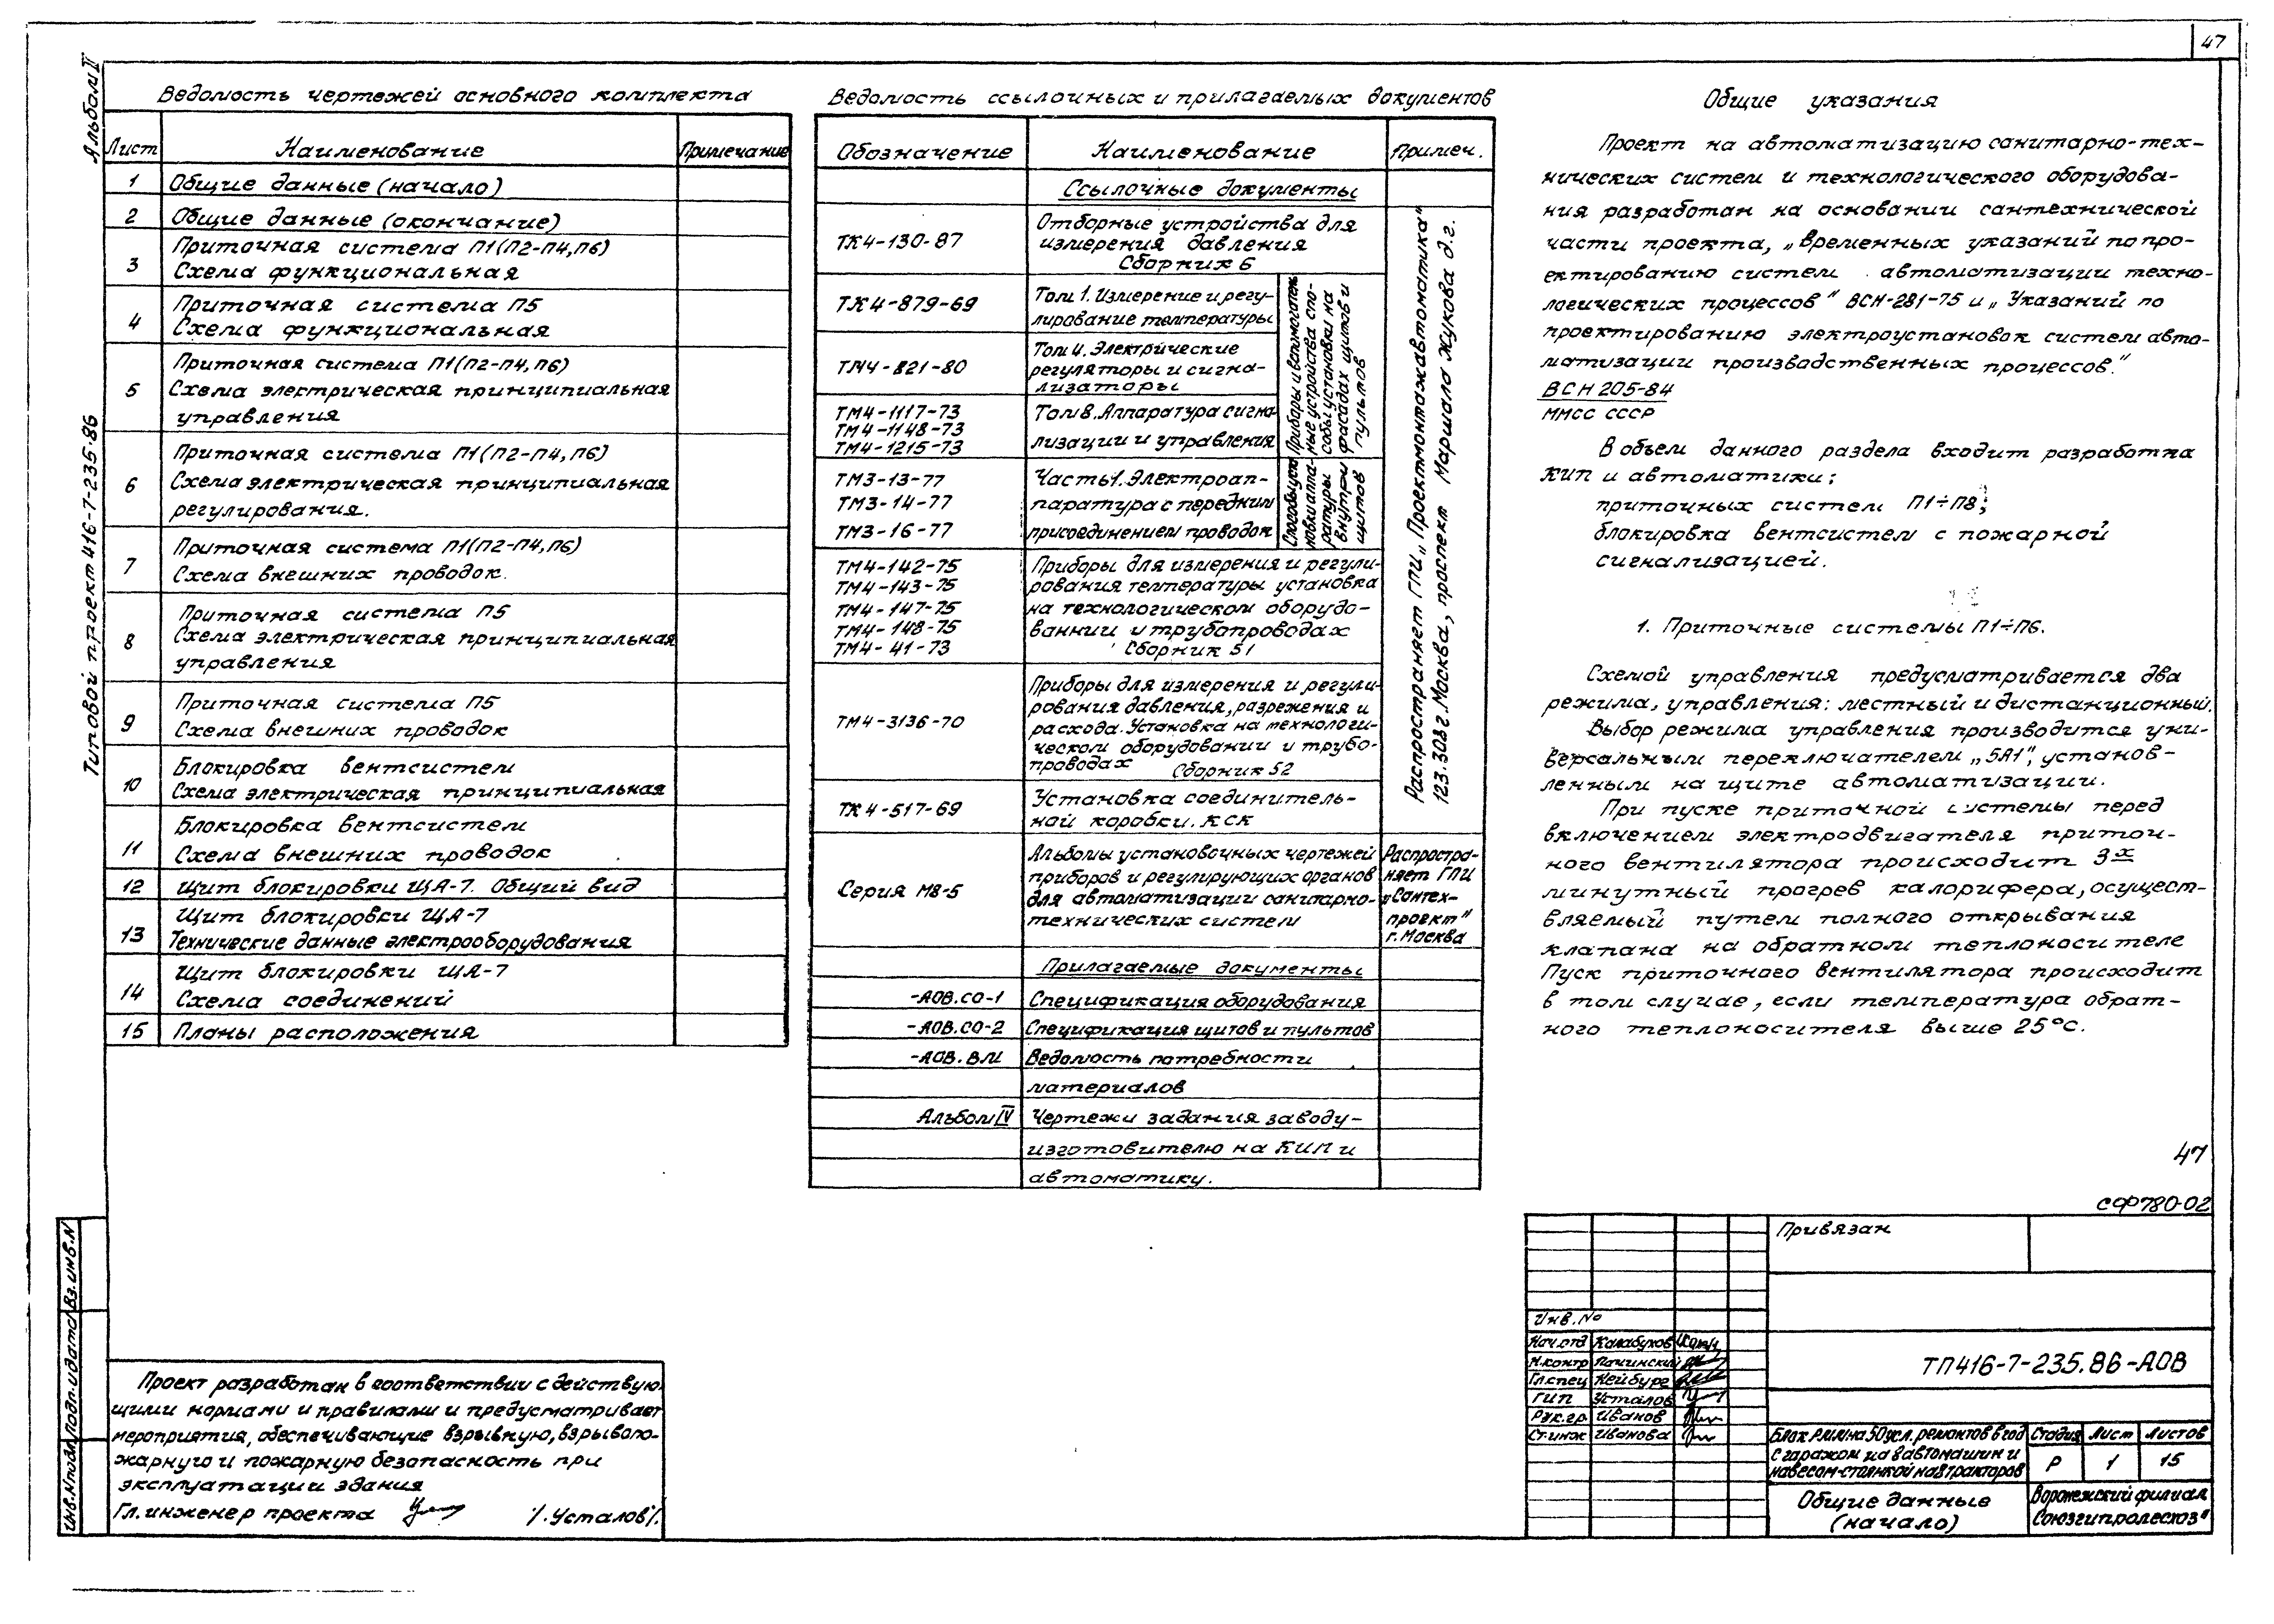 47
Альбом II
Типовой проект 416-7-235·86
Ведомость чертежей основного комплекта
Лист Наименование Примечание
1 Общие данные (начало)
2 Общие данные (окончание)
3 Приточная система П1(П2-П4,П6)
Схема функциональная
4 Приточная система П5
Схема функциональная
5 Приточная система П1(П2-П4,П6)
Схема электрическая принципиальная
управления
6 Приточная система П1(П2-П4,П6)
Схема электрическая принципиальная
регулирования.
7 Приточная система П1(П2-П4,П6)
Схема внешних проводок.
8 Приточная система П5
Схема электрическая принципиальная
управления
9 Приточная система П5
Схема внешних проводок
10 Блокировка вентсистем
Схема электрическая принципиальная
11 Блокировка вентсистем
Схема внешних проводок
12 Щит блокировки ЩА-7. Общий вид
13 Щит блокировки ЩА-7
Технические данные электрооборудования
14 Щит блокировки ЩА-7
Схема соединений
15 Планы расположения
Ведомость ссылочных и прилагаемых документов
Обозначение Наименование Примеч.
Ссылочные документы
ТК4-130-87 Отборные устройства для
измерения давления
Сборник 6
ТК4-879-69 Том 1. Измерение и регу-
лирование температуры
ТМ4-821-80 Том 4. Электрические
регуляторы и сигна-
лизаторы
ТМ4-1117-73 Том 8. Аппаратура сигна-
ТМ4-1148-73
ТМ4-1215-73 лизации и управления
Приборы и вспомогатель
ные устройства спо-
собы установки на
фасадах щитов и
пультов
ТМ3-13-77 Часть 1. Электроап-
ТМ3-14-77 паратура с передним
ТМ3-16-77 присоединением проводок
Способы уста
новки аппа-
ратуры
внутри
щитов
ТМ4-142-75 Приборы для измерения и регули-
ТМ4-143-75 рования температуры установка
ТМ4-147-75 на технологическом оборудо-
ТМ4-148-75 вании и трубопроводах
ТМ4-41-73 Сборник 51
ТМ4-3136-70 Приборы для измерения и регули-
рования давления, разрежения и
расхода. Установка на технологи-
ческом оборудовании и трубо-
проводах Сборник 52
ТК4-517-69 Установка соединитель-
ной коробки. КСК
Распространяет ГПИ „Проектмонтажавтоматика"
123.308 г. Москва, проспект Маршала Жукова д.2.
Серия М8-5 Альбомы установочных чертежей
приборов и регулирующих органов
для автоматизации санитарно-
технических систем
Распростра-
няет ГПИ
„Сантех-
проект"
г. Москва
Прилагаемые документы
-АОВ.СО-1 Спецификация оборудования
-АОВ.СО-2 Спецификация щитов и пультов
-АОВ.ВМ Ведомость потребности
материалов
Альбом IV Чертежи задания заводу-
изготовителю на КИП и
автоматику.
Общие указания
Проект на автоматизацию санитарно-тех-
нических систем и технологического оборудова-
ния разработан на основании сантехнической
части проекта, „Временных указаний по про-
ектированию систем автоматизации техно-
логических процессов" ВСН-281-75 и „Указаний по
проектированию электроустановок систем авто-
матизации производственных процессов."
ВСН 205-84
ММСС СССР
В объем данного раздела входит разработка
КИП и автоматики:
приточных систем П1÷П8;
блокировка вентсистем с пожарной
сигнализацией.
1. Приточные системы П1÷П6.
Схемой управления предусматривается два
режима, управления: местный и дистанционный.
Выбор режима управления производится уни-
версальным переключателем „SA1", установ-
ленным на щите автоматизации.
При пуске приточной системы перед
включением электродвигателя приточ-
ного вентилятора происходит 3х
минутный прогрев калорифера, осущест-
вляемый путем полного открывания
клапана на обратном теплоносителе
Пуск приточного вентилятора происходит
в том случае, если температура обрат-
ного теплоносителя выше 25°С.
47
СФ780-02
Привязан
Инв.№
Нач.отд Калабухов
Н.контр Пачинский
Гл.спец Нейбуре
ГИП Усталов
Рук.гр. Иванов
Ст.инж Иванова
ТП416-7-235.86-АОВ
Блок РММ на 50 усл. ремонтов в год
с гаражом на 8 автомашин и
навесом-стоянкой на 8 тракторов
Стадия Лист Листов
Р 1 15
Общие данные
(начало)
Воронежский филиал
Союзгипролесхоз"
Проект разработан в соответствии с действую
щими нормами и правилами и предусматривает
мероприятия, обеспечивающие взрывную, взрывопо-
жарную и пожарную безопасность при
эксплуатации здания
Гл. инженер проекта /.Усталов/.
Инв.Nподл Подп. и дата Вз.инв.N